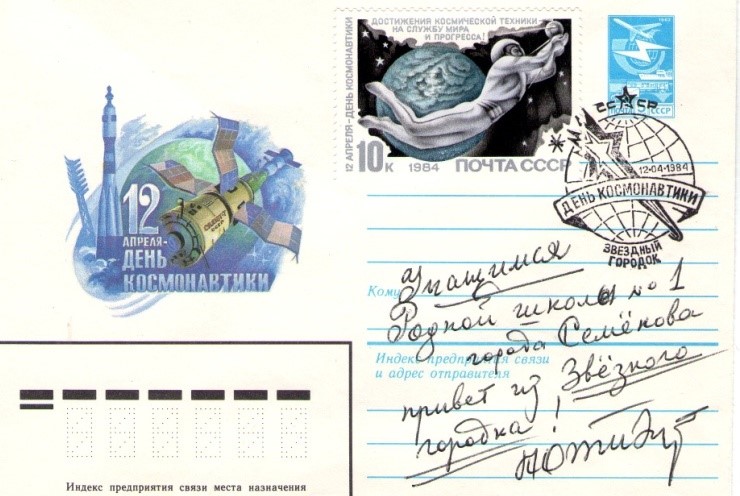 ДОСТИЖЕНИЯ КОСМИЧЕСКОЙ ТЕХНИКИ
НА СЛУЖБУ МИРА
И ПРОГРЕССА!
12 АПРЕЛЯ-ДЕНЬ КОСМОНАВТИКИ
10К 1984 ПОЧТА СССР
ПОЧТА СССР
СССР
12-04-1984
ДЕНЬ КОСМОНАВТИКИ
ЗВЕЗДНЫЙ
ГОРОДОК
12
АПРЕЛЯ-
ДЕНЬ
КОСМОНАВТИКИ
Кому
учащимся
Родной школы № 1
города Семёнова
Индекс предприятия связи
и адрес отправителя
привет из Звёзного
городка!
Индекс предприятия связи места назначения